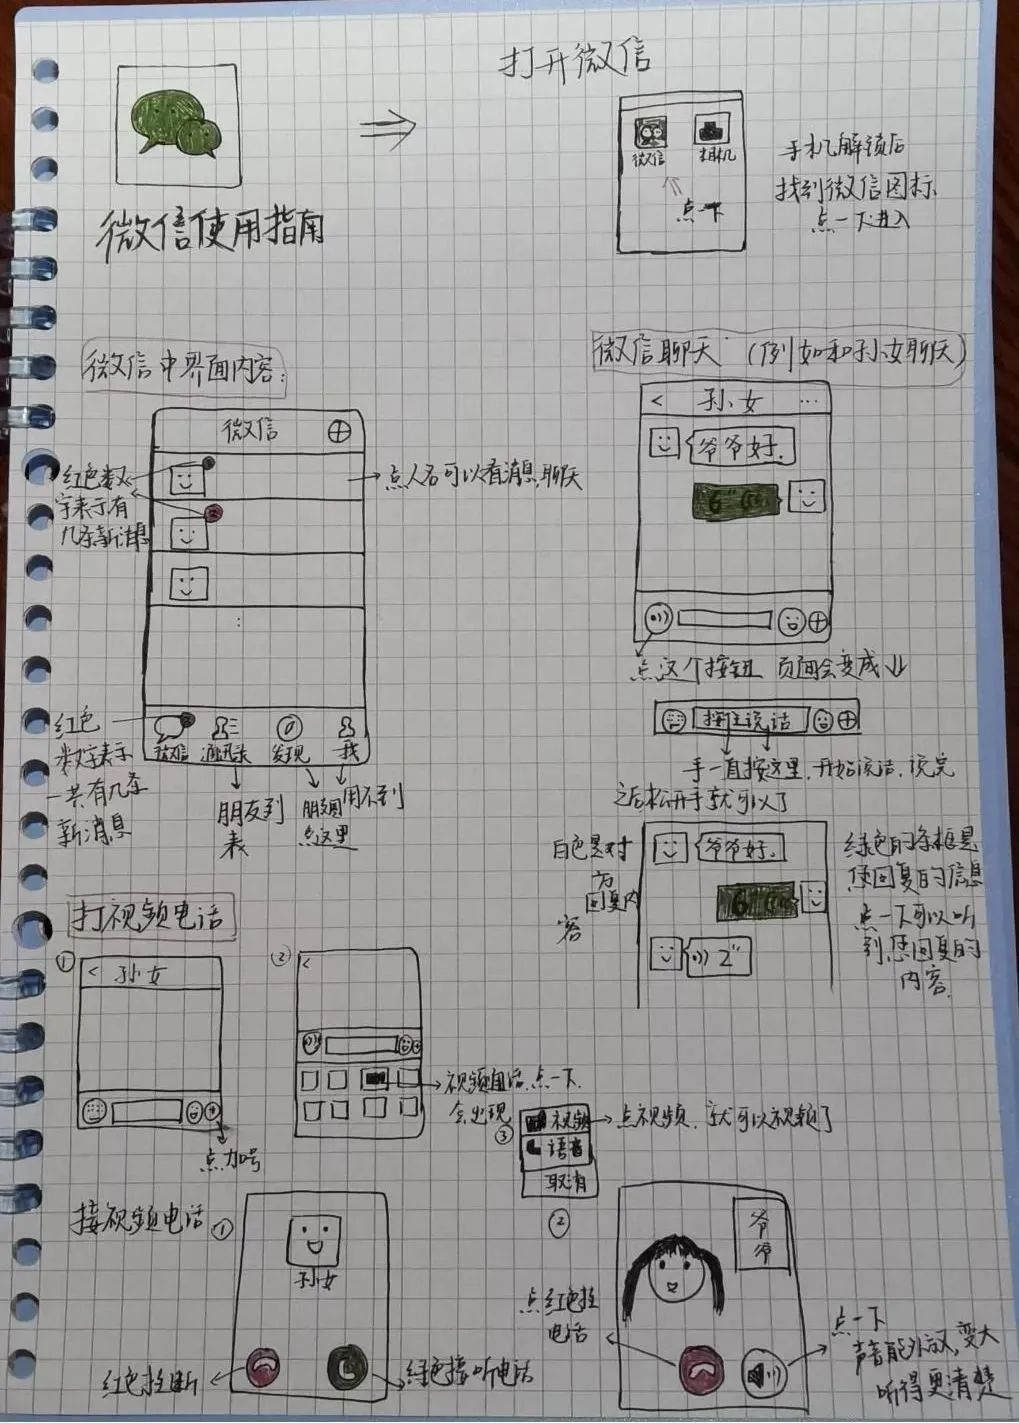 微信使用指南
打开微信
微信
相机
点一下
手机解锁后
找到微信图标
点一下进入
微信中界面内容:
微信
红色数
字表示有
几条新消息
点人名可以看消息,聊天
微信
通讯录
发现
我
红色
数字表示
一共有几条
新消息
朋友列
表
朋友圈
点这里
用不到
微信聊天 (例如和孙女聊天)
< 孙女 ...
爷爷好.
6"
点这个按钮 页面会变成
按住说话
手一直按这里,开始说话,说完
之后松开手就可以了
白色是对
方
回复内
容
爷爷好.
6"
2"
绿色的条框是
您回复的信息
点一下可以听
到您回复的
内容.
打视频电话
①
< 孙女
点加号
②
<
视频电话,点一下
会出现
③
视频
语音
取消
点视频,就可以视频了
接视频电话
①
孙女
红色挂断
绿色接听电话
②
爷爷
点红色挂
电话
点一下
声音能外放,变大
听得更清楚